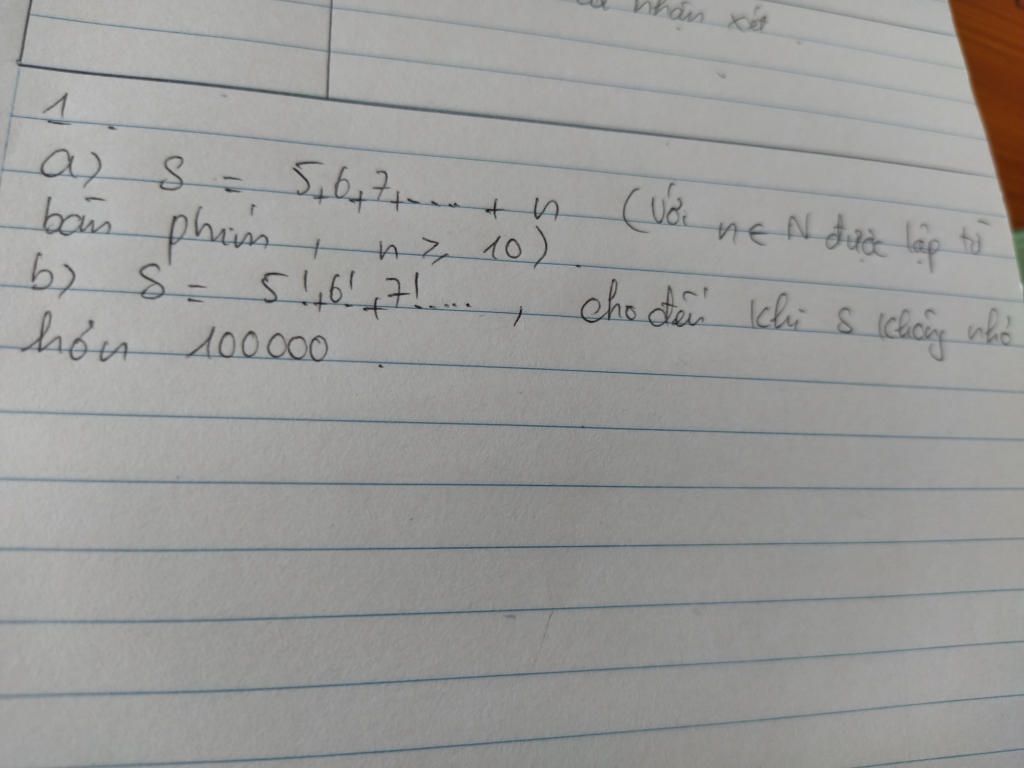 nhận xét
1.
a) S = 5+6+7+.... + n (Với n ∈ N được lập từ
bàn phím, n ≥ 10).
b) S = 5!+6!+7!...., cho đến khi S không nhỏ
hơn 100000.